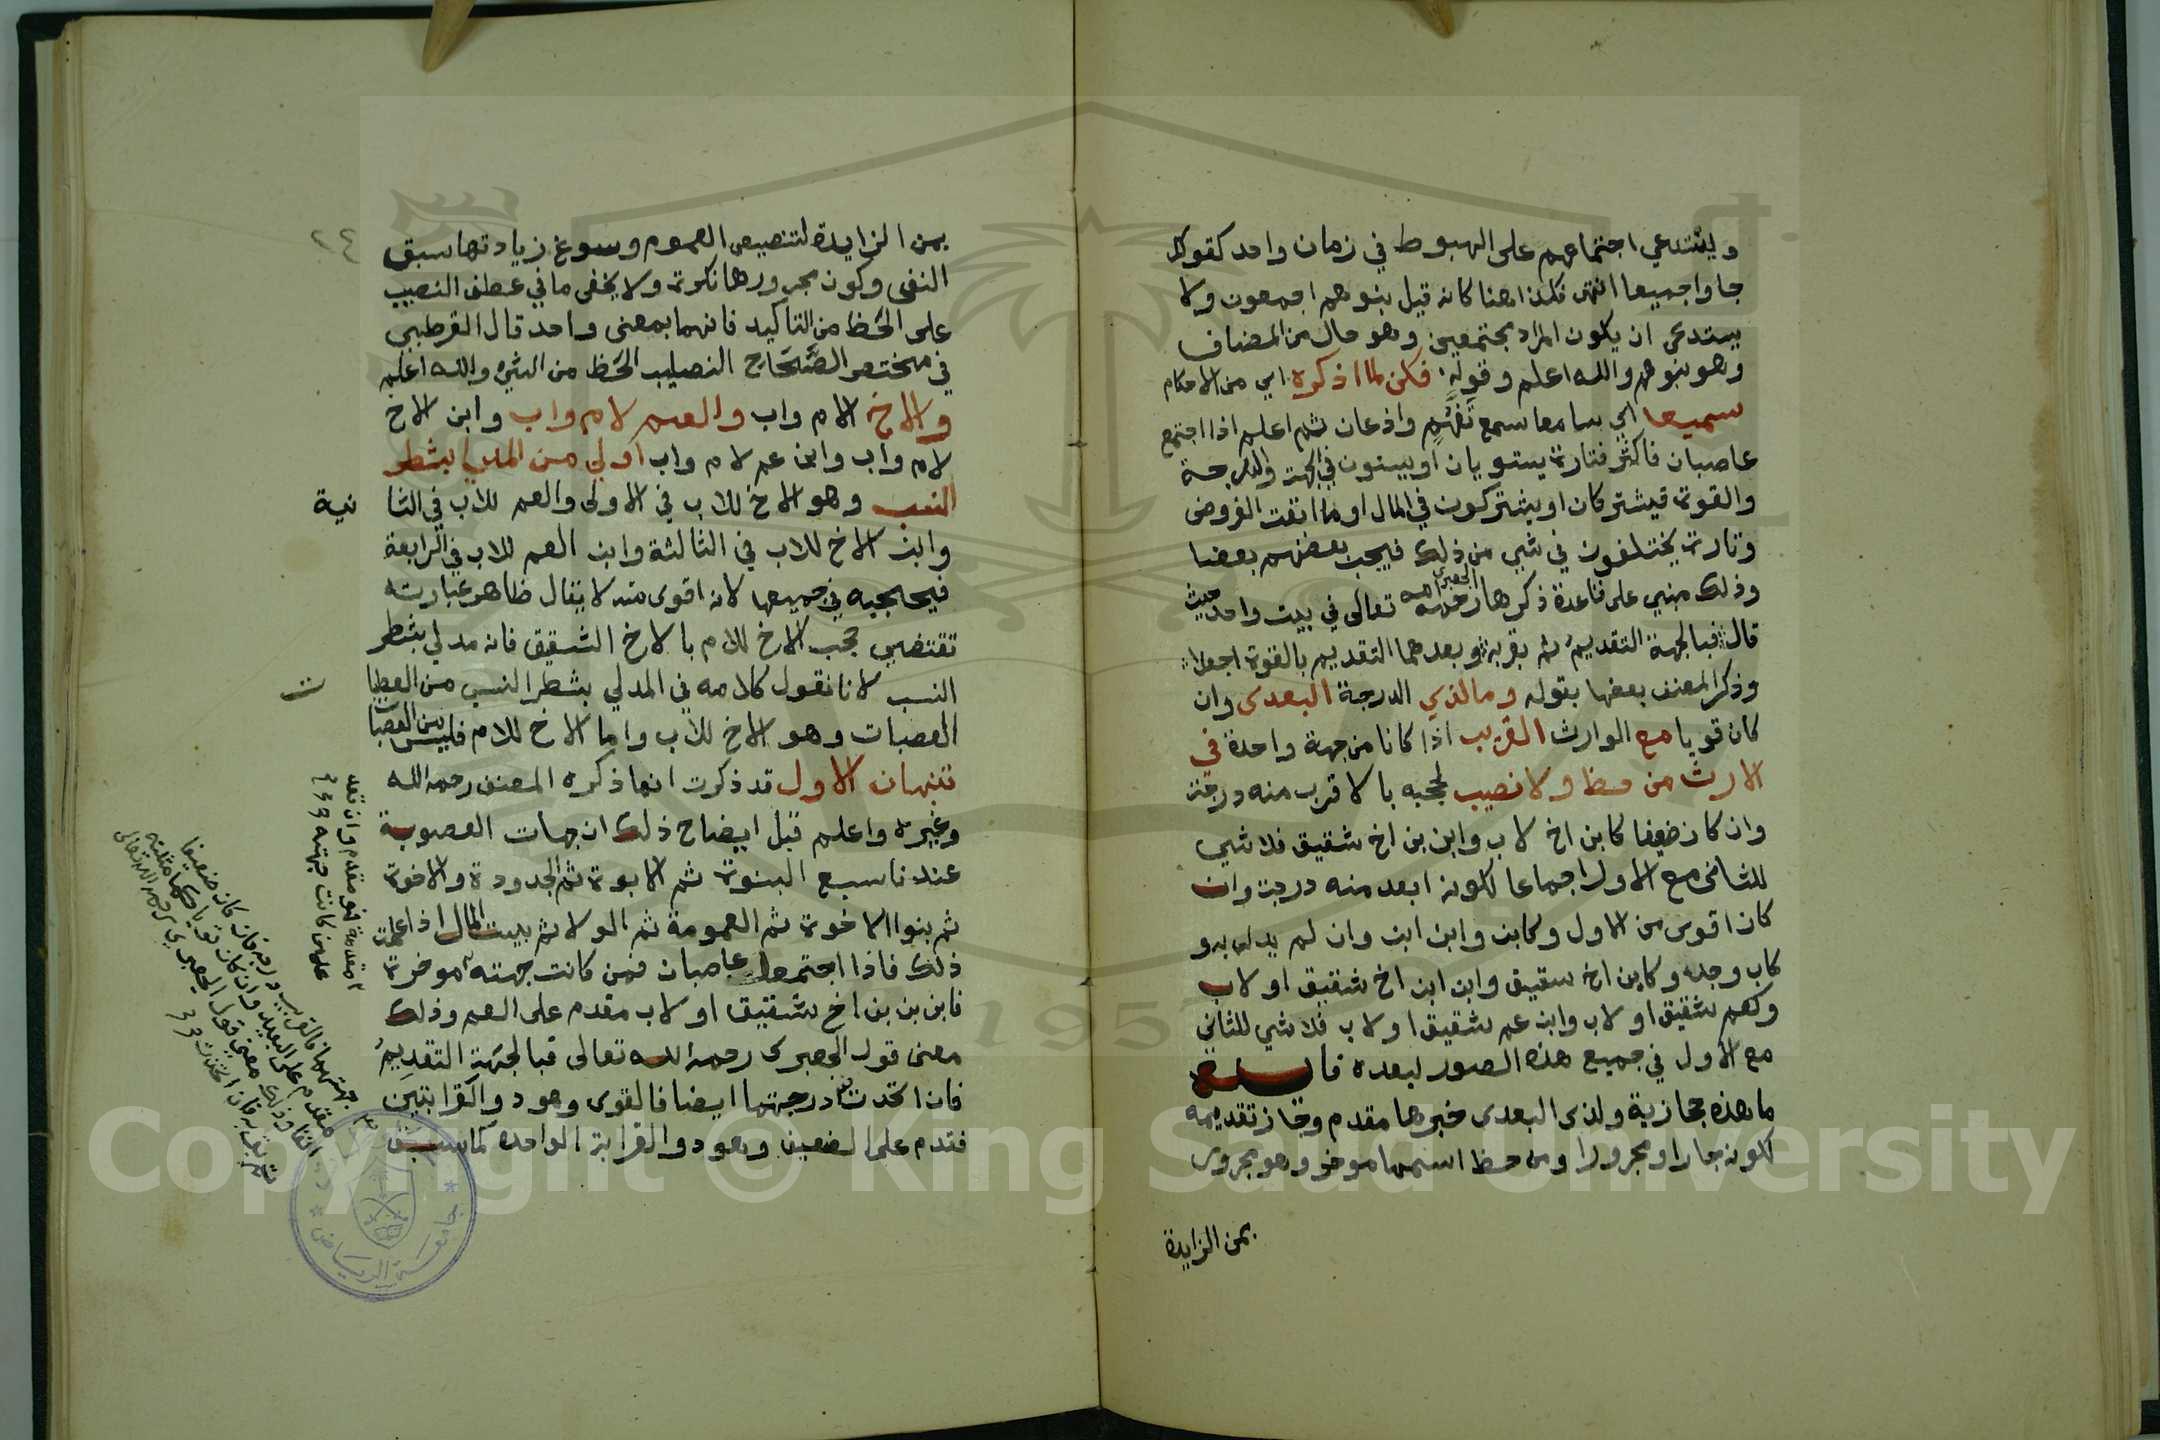 ويستدعي اجتماعهم على الهبوط في زمان واحد كقولك
جاوا جميعا انتهى فكذا هنا كانه قيل بنوهم اجمعون ولا
يستدعي ان يكون المراد مجتمعين وهو حال من المضاف
وهو بنوهم والله اعلم وقوله فكن لما اذكره اي من الاحكام
سميعا اي سامعا سمع تفهم واذعان ثم اعلم اذا اجتمع
عاصبان فاكثر فتارة يستويان او يستوون في الجهة والدرجة
والقوة فيشتركان او يشتركون في المال او ما ابقت الفروض
وتارة يختلفون في شي من ذلك فيحجب بعضهم بعضا
وذلك مبني على قاعدة ذكرها الجعبري رحمه الله تعالى في بيت واحد حيث
قال فبالجهة التقديم ثم بقربه وبعدهما التقديم بالقوة اجعلا
وذكر المصنف بعضها بقوله وما لذي الدرجة البعدى وان
كان قويا مع الوارث القريب اذا كانا من جهة واحدة في
الارث من حظ ولا نصيب لحجبه بالاقرب منه درجة
وان كان ضعيفا كابن اخ لاب وابن بن اخ شقيق فلا شي
للثاني مع الاول اجماعا لكونه ابعد منه درجة وان
كان اقوى من الاول وكابن وابن ابن وان لم يدلي به و
كاب وجد وكابن اخ شقيق وابن ابن اخ شقيق او لاب
وكعم شقيق او لاب وابن عم شقيق او لاب فلا شي للثاني
مع الاول في جميع هذه الصور لبعده
ما هذه حجازية ولذي البعدى خبرها مقدم وجاز تقديمه
لكونه جارا ومجرورا ومن حظ اسمها موخر وهو مجرور
بمن الزايدة
بمن الزايدة لتنصيص العموم وسوغ زيادتها سبق
النفي وكون مجرورها نكرة ولا يخفى ما في عطف النصيب
على الحظ من التاكيد فانهما بمعنى واحد قال القرطبي
في مختصر الصحاح النصيب الحظ من الشي والله اعلم
والاخ لام واب والعم لام واب وابن الاخ
لام واب وابن عم لام واب اولى من المدلي بشطر
النسب وهو الاخ للاب في الاولى والعم للاب في الثا
نية
وابن الاخ للاب في الثالثة وابن العم للاب في الرابعة
فيحجبه في جميعها لانه اقوى منه لا يقال ظاهر عبارته
تقتضي حجب الاخ للام بالاخ الشقيق فانه مدلي بشطر
النسب لانا نقول كلامه في المدلي بشطر النسب من
العصبات وهو الاخ للاب واما الاخ للام فليس من العصبات
تنبيهان الاول قد ذكرت انها ذكره المصنف رحمه الله
وغيره واعلم قبل ايضاح ذلك ان جهات العصوبة
عندنا سبع البنوة ثم الابوة ثم الجدودة والاخوة
ثم بنوا الاخوة ثم العمومة ثم الولا ثم بيت المال اذا علمت
ذلك فاذا اجتمع عاصبان فمن كانت جهته موخرة
فابن بن بن اخ شقيق او لاب مقدم على العم وذلك
معنى قول الجعبري رحمه الله تعالى فبالجهة التقديم
فان اتحدت درجتهما ايضا فالقوى وهو ذو القرابتين
فقدم على الضعيف وهو ذو القرابة الواحدة كما سبق
مقدمة فهو مقدم وان بعد
على من كانت جهته
جهتهما فالقريب درجة وان كان ضعيفا
مقدم على البعيد وان كان قويا
وذلك معنى قول الجعبري رحمه الله تعالى
ثم بقربه فان اتحدت
جامعة الرياض
1957
Copyright © King Saud University